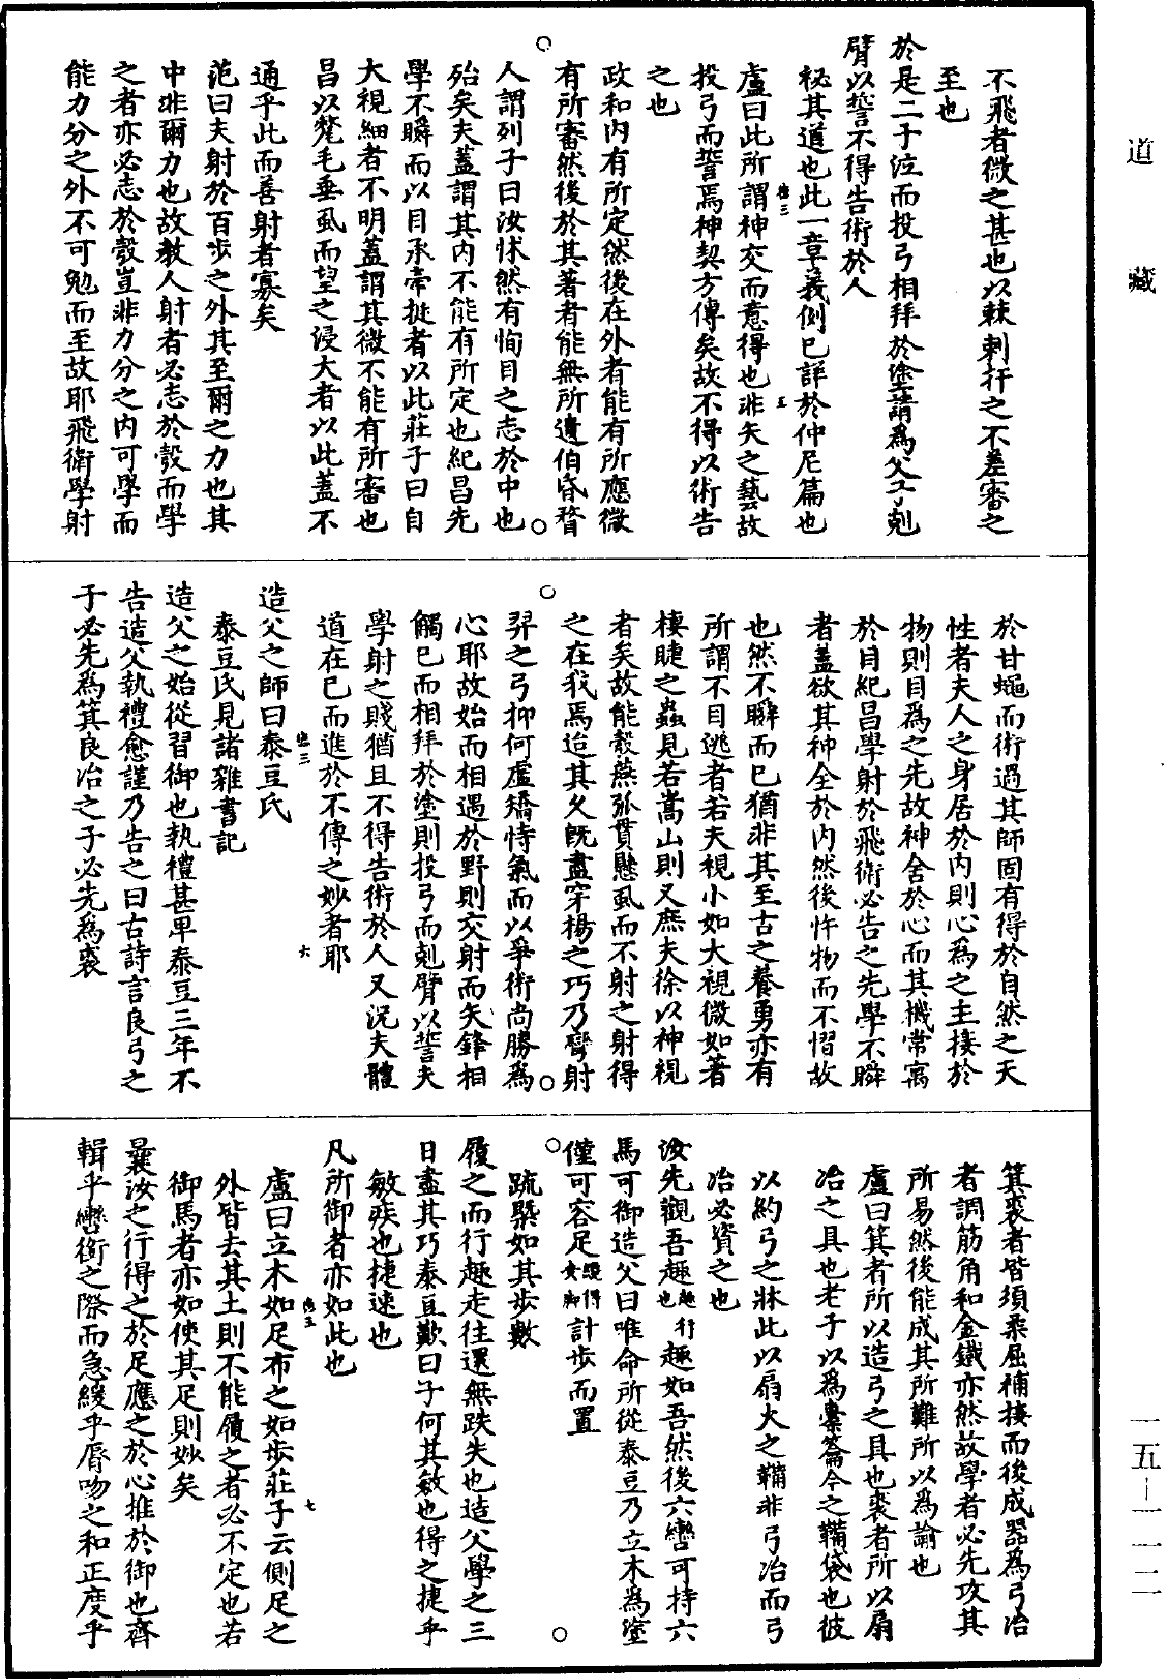 道藏
不飛者微之甚也以棘刺扞之不差審之
至也
於是二子泣而投弓相拜於塗請為父子剋
臂以誓不得告術於人
祕其道也此一章義例已詳於仲尼篇也
盧曰此所謂神交而意得也非矢之藝故
投弓而誓焉神契方傳矣故不得以術告
之也
政和內有所定然後在外者能有所應微
有所審然後於其著者能無所遺伯昏瞀
人謂列子曰汝怵然有恂目之志於中也
殆矣夫蓋謂其內不能有所定也紀昌先
學不瞬而以目承牽挺者以此莊子曰自
大視細者不明蓋謂其微不能有所審也
昌以氂毛垂虱而望之浸大者以此蓋不
通乎此而善射者寡矣
范曰夫射於百步之外其至爾之力也其
中非爾力也故教人射者必志於彀而學
之者亦必志於彀豈非力分之內可學而
能力分之外不可勉而至故耶飛衛學射
於甘蠅而術過其師固有得於自然之天
性者夫人之身居於內則心為之主接於
物則目為之先故神舍於心而其機常寓
於目紀昌學射於飛術必告之先學不瞬
者蓋欲其神全於內然後忤物而不慴故
也然不瞬而已猶非其至古之養勇亦有
所謂不目逃者若夫視小如大視微如著
棲睫之蟲見若嵩山則又庶夫徐以神視
者矣故能彀燕弧貫懸虱而不射之射得
之在我焉迨其久既盡穿楊之巧乃彎射
羿之弓抑何虛矯恃氣而以爭術尚勝為
心耶故始而相遇於野則交射而矢鋒相
觸已而相拜於塗則投弓而剋臂以誓夫
學射之賤猶且不得告術於人又況夫體
道在己而進於不傳之妙者耶
造父之師曰泰豆氏
泰豆氏見諸雜書記
造父之始從習御也執禮甚卑泰豆三年不
告造父執禮愈謹乃告之曰古詩言良弓之
子必先為箕良冶之子必先為裘
箕裘者皆須柔屈補接而後成器為弓冶
者調筋角和金鐵亦然故學者必先攻其
所易然後能成其所難所以為諭也
盧曰箕者所以造弓之具也裘者所以扇
冶之具也老子以為橐籥今之鞴袋也彼
以約弓之牀此以扇火之鞴非弓冶而弓
冶必資之也
汝先觀吾趣趣行也趣如吾然後六轡可持六
馬可御造父曰唯命所從泰豆乃立木為塗
僅可容足纔得安腳計步而置
疏槩如其步數
履之而行趣走往還無跌失也造父學之三
日盡其巧泰豆歎曰子何其敏也得之捷乎
敏疾也捷速也
凡所御者亦如此也
盧曰立木如足布之如步莊子云側足之
外皆去其土則不能履之者必不定也若
御馬者亦如使其足則妙矣
曩汝之行得之於足應之於心推於御也齊
輯乎轡銜之際而急緩乎脣吻之和正度乎
一五-一一二